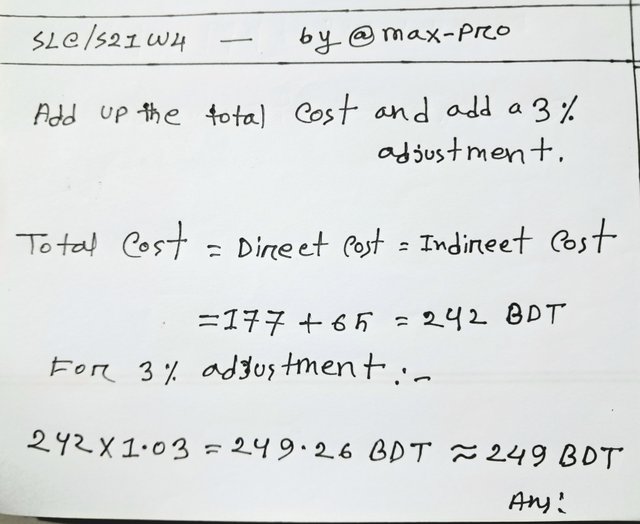 SLC/S21W4 — by @max-pro
Add up the total cost and add a 3%
adjustment.
Total Cost = Direct Cost = Indirect Cost
= 177 + 65 = 242 BDT
For 3% adjustment :-
242 X 1.03 = 249.26 BDT ≈ 249 BDT
Ans: